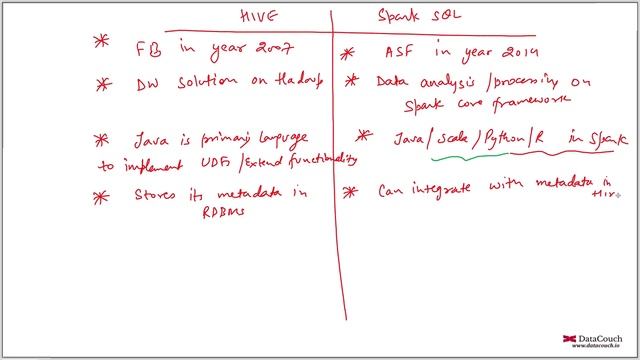 HIVE
Spark SQL
* FB in year 2007
* ASF in year 2014
* DW solution on Hadoop
* Data analysis / processing on
Spark core framework
* Java is primary language
to implement UDFs / Extend functionality
* Java / Scala / Python / R in Spark
* Stores its metadata in
RDBMS
* Can integrate with metadata in
Hiv
DataCouch
www.datacouch.io